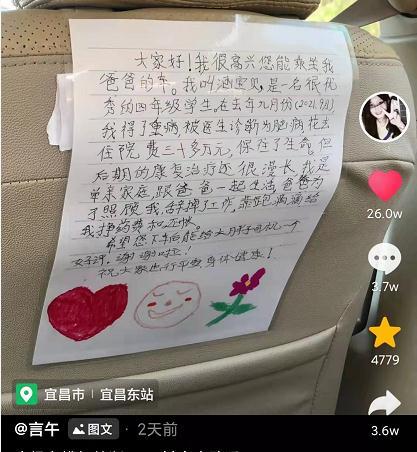 大家好！我很高兴您能乘坐我
爸爸的车。我叫涵雪儿，是一名很优
秀的四年级学生。在去年九月份(2021.9月)
我得了重病，被医生诊断为脑病，花去
住院费三十多万元，保住了生命。但
后期的康复治疗还很漫长，我是
单亲家庭，跟爸爸一起生活，爸爸为
了照顾我，辞掉工作，
我挣药费和
希望您下车后能给大月手司机一个
好评，谢谢啦！
祝大家出行平安身体健康！
26.0w
3.7w
4779
3.6w
宜昌市 | 宜昌东站
@言午 图文 · 2天前